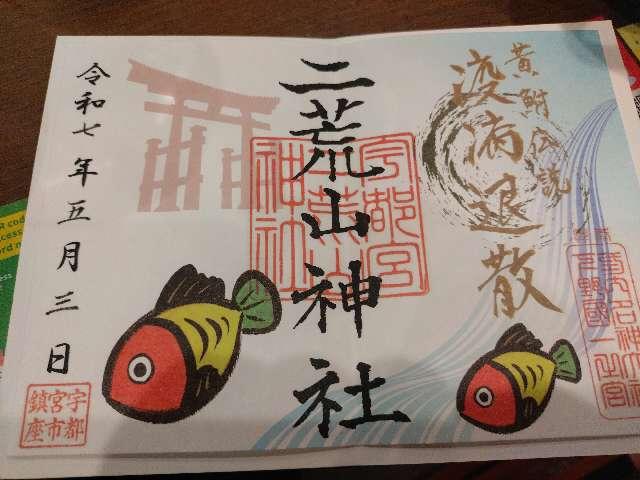 黄鮒伝説
疫病退散
二荒山神社
宇都宮
二荒山
神社
令和七年五月三日
宇都
宮市
鎮座
下野國一之宮